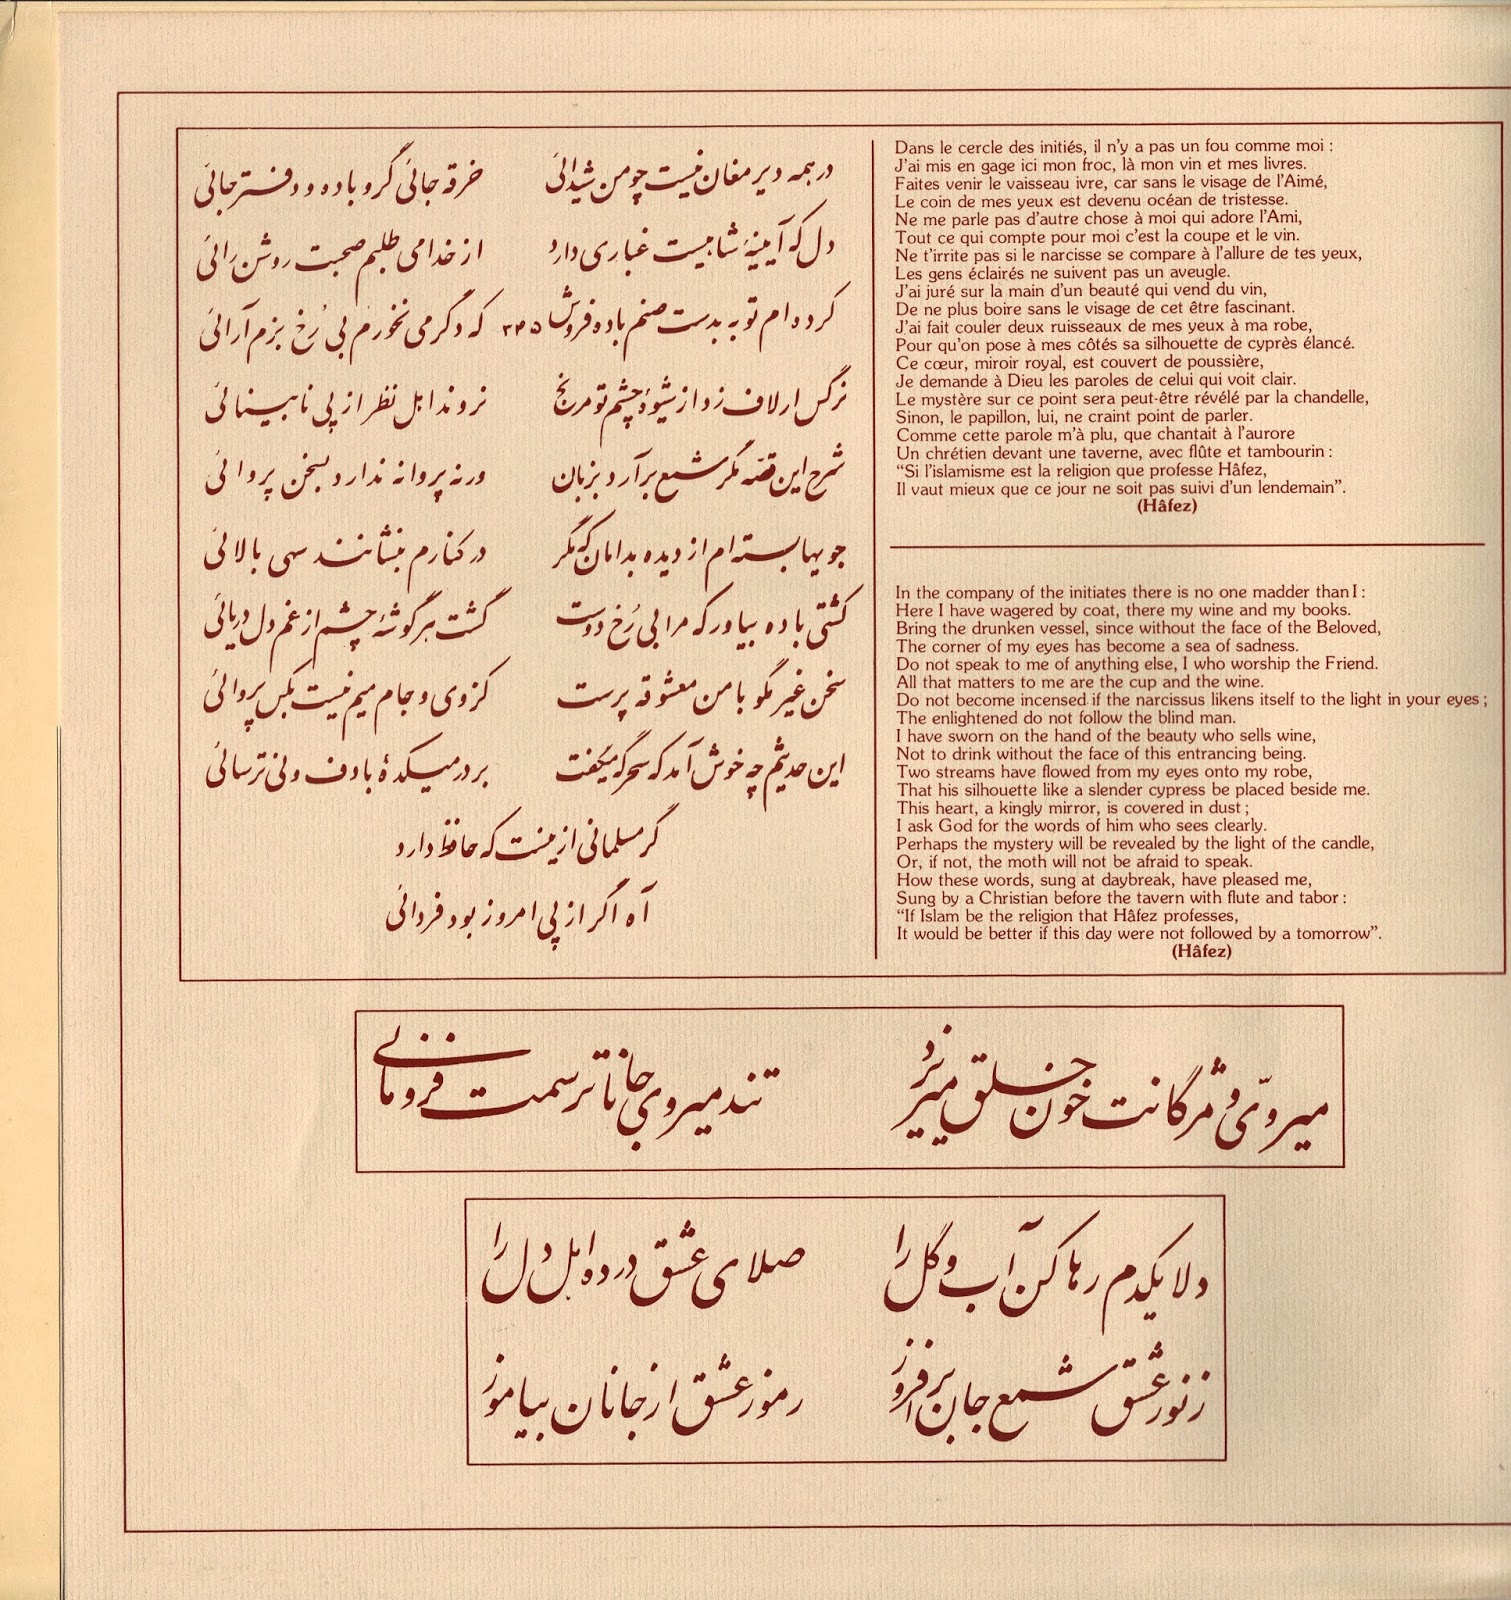 در همه دیر مغان نیست چو من شیدائی خرقه جائی گرو باده و دفتر جائی
دل که آیینهٔ شاهیست غباری دارد از خدا می طلبم صحبت روشن رائی
کرده ام توبه بدست صنم باده فروش ۳۴۵ که دگر می نخورم بی رُخ بزم آرائی
نرگس ار لاف زد از شیوهٔ چشم تو مرنج نروند اهل نظر از پی نابینائی
شرح این قصّه مگر شمع برآرد بزبان ورنه پروانه ندارد بسخن پروائی
جویها بسته ام از دیده بدامان که مگر در کنارم بنشانند سهی بالائی
کشتی باده بیاور که مرا بی رُخ دوست گشت هر گوشهٔ چشم از غم دل دریائی
سخن غیر مگو با من معشوقه پرست کز وی و جام میم نیست بکس پروائی
این حدیثم چه خوش آمد که سحرگه میگفت بر در میکدهٔ با دف و نی ترسائی
گر مسلمانی از اینست که حافظ دارد
آه اگر از پی امروز بود فردائی
Dans le cercle des initiés, il n'y a pas un fou comme moi :
J'ai mis en gage ici mon froc, là mon vin et mes livres.
Faites venir le vaisseau ivre, car sans le visage de l'Aimé,
Le coin de mes yeux est devenu océan de tristesse.
Ne me parle pas d'autre chose à moi qui adore l'Ami,
Tout ce qui compte pour moi c'est la coupe et le vin.
Ne t'irrite pas si le narcisse se compare à l'allure de tes yeux,
Les gens éclairés ne suivent pas un aveugle.
J'ai juré sur la main d'un beauté qui vend du vin,
De ne plus boire sans le visage de cet être fascinant.
J'ai fait couler deux ruisseaux de mes yeux à ma robe,
Pour qu'on pose à mes côtés sa silhouette de cyprès élancé.
Ce cœur, miroir royal, est couvert de poussière,
Je demande à Dieu les paroles de celui qui voit clair.
Le mystère sur ce point sera peut-être révélé par la chandelle,
Sinon, le papillon, lui, ne craint point de parler.
Comme cette parole m'à plu, que chantait à l'aurore
Un chrétien devant une taverne, avec flûte et tambourin :
“Si l'islamisme est la religion que professe Hâfez,
Il vaut mieux que ce jour ne soit pas suivi d'un lendemain”.
(Hâfez)
In the company of the initiates there is no one madder than I :
Here I have wagered by coat, there my wine and my books.
Bring the drunken vessel, since without the face of the Beloved,
The corner of my eyes has become a sea of sadness.
Do not speak to me of anything else, I who worship the Friend.
All that matters to me are the cup and the wine.
Do not become incensed if the narcissus likens itself to the light in your eyes ;
The enlightened do not follow the blind man.
I have sworn on the hand of the beauty who sells wine,
Not to drink without the face of this entrancing being.
Two streams have flowed from my eyes onto my robe,
That his silhouette like a slender cypress be placed beside me.
This heart, a kingly mirror, is covered in dust ;
I ask God for the words of him who sees clearly.
Perhaps the mystery will be revealed by the light of the candle,
Or, if not, the moth will not be afraid to speak.
How these words, sung at daybreak, have pleased me,
Sung by a Christian before the tavern with flute and tabor :
“If Islam be the religion that Hâfez professes,
It would be better if this day were not followed by a tomorrow”.
(Hâfez)
میروّی و مژگانت خون خلق میریزد تند میروی جانا ترسمت فرومانی
دلا یکدم رها کن آب و گل را صلای عشق در ده اهل دل را
ز نور عشق شمع جان برافروز رموز عشق از جانان بیاموز